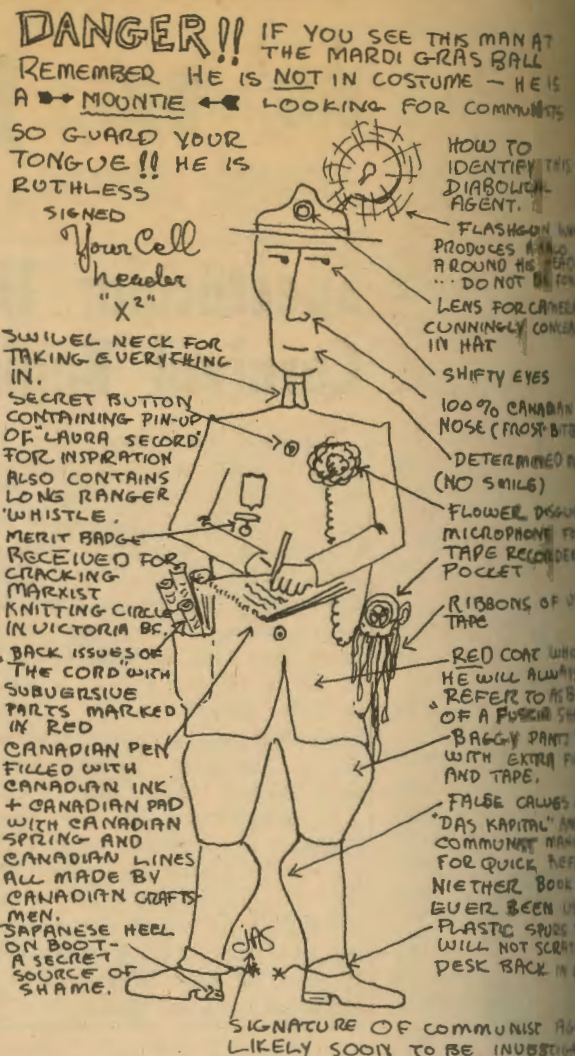 DANGER!! IF YOU SEE THIS MAN AT
THE MARDI GRAS BALL
REMEMBER HE IS NOT IN COSTUME — HE IS
A MOUNTIE LOOKING FOR COMMUNISTS
SO GUARD YOUR
TONGUE!! HE IS
RUTHLESS
SIGNED
Your Cell
header
"X²"
SWIVEL NECK FOR
TAKING EVERYTHING
IN.
SECRET BUTTON
CONTAINING PIN-UP
OF "LAURA SECORD"
FOR INSPIRATION
ALSO CONTAINS
LONG RANGER
WHISTLE.
MERIT BADGE
RECEIVED FOR
CRACKING
MARXIST
KNITTING CIRCLE
IN VICTORIA BC.
BACK ISSUES OF
"THE CORD" WITH
SUBVERSIVE
PARTS MARKED
IN RED
CANADIAN PEN
FILLED WITH
CANADIAN INK
+ CANADIAN PAD
WITH CANADIAN
SPRING AND
CANADIAN LINES
ALL MADE BY
CANADIAN CRAFTS-
MEN.
JAPANESE HEEL
ON BOOT-
A SECRET
SOURCE OF
SHAME.
HOW TO
IDENTIFY THIS
DIABOLICAL
AGENT.
FLASHGUN
PRODUCES A HALO
AROUND HIS HEAD
... DO NOT BE
LENS FOR CAMERA
CUNNINGLY
IN HAT
SHIFTY EYES
100% CANADIAN
NOSE (FROST BITE
DETERMINED
(NO SMILE)
FLOWER
MICROPHONE
TAPE RECORDER
POCKET
RIBBONS OF
TAPE
RED COAT
HE WILL ALWAYS
REFER TO AS
"OF A FUSCIA
BAGGY PANTS
WITH EXTRA
AND TAPE.
FALSE CALVES
"DAS KAPITAL"
COMMUNIST
FOR QUICK
NIETHER BOOK
EVER BEEN
PLASTIC SPURS
WILL NOT
DESK BACK IN
JAS
SIGNATURE OF COMMUNIST
LIKELY SOON TO BE